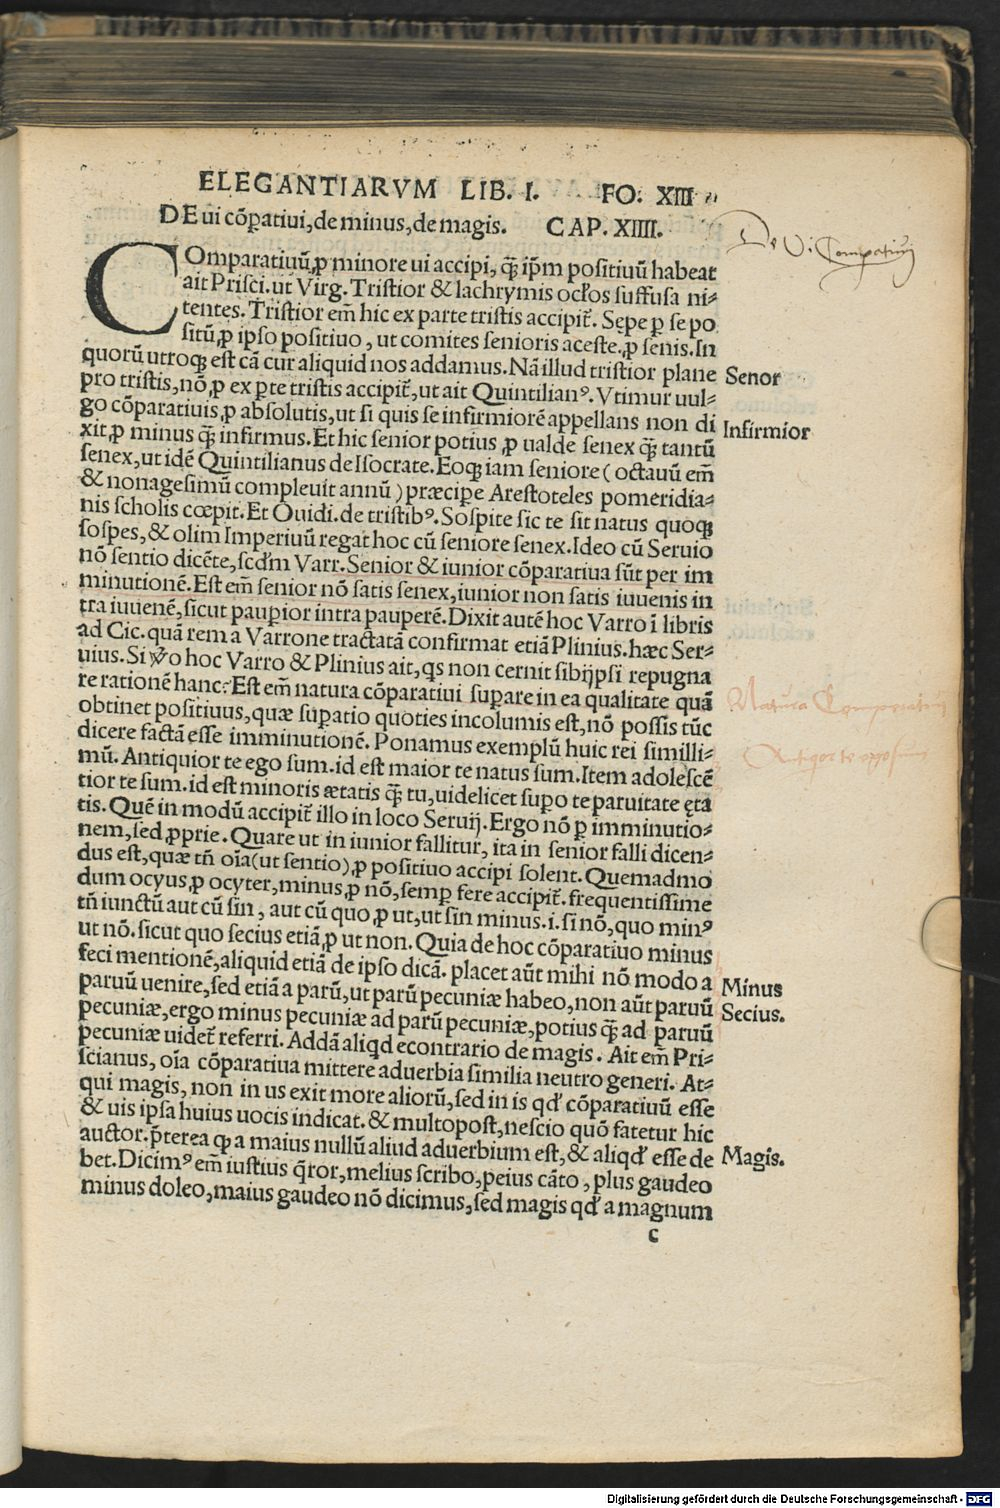 ELEGANTIARVM LIB. I. FO: XIII
DE ui cõꝑatiui, de minus, de magis. CAP. XIIII.
De Vi Comparatiui
COmparatiuũ, ꝓ minore ui accipi, q̃ ip̃m positiuũ habeat
ait Prisci. ut Virg. Tristior & lachrymis ocłos suffusa ni-
tentes. Tristior em̃ hic ex parte tristis accipit̃. Sępe ꝑ se po
sitũ, ꝓ ipso positiuo, ut comites senioris aceste, ꝓ senis. In
quorũ utroqꝫ est cã cur aliquid nos addamus. Nã illud tristior plane
Senor
pro tristis, nõ, ꝓ ex ꝑte tristis accipit̃, ut ait Quintilianꝰ. Vtimur uul-
go cõparatiuis, ꝓ absolutis, ut si quis se infirmiorẽ appellans non di
Infirmior
xit, ꝓ minus q̃ infirmus. Et hic senior potius, ꝓ ualde senex q̃ tantũ
senex, ut idẽ Quintilianus de Isocrate. Eoqꝫ iam seniore (octauũ em̃
& nonagesimũ compleuit annũ) præcipe Arestoteles pomeridia-
nis scholis cœpit. Et Ouidi. de tristibꝰ. Sospite sic te sit natus quoqꝫ
sospes, & olim Imperiuũ regat hoc cũ seniore senex. Ideo cũ Seruio
nõ sentio dicẽte, scd̃m Varr. Senior & iunior cõparatiua sũt per im
minutionẽ. Est em̃ senior nõ satis senex, iunior non satis iuuenis in
tra iuuenẽ, sicut pauꝑior intra pauperẽ. Dixit autẽ hoc Varro ĩ libris
ad Cic. quã rem a Varrone tractatã confirmat etiã Plinius. hæc Ser-
uius. Si ṽo hoc Varro & Plinius ait, qs non cernit sibijpsi repugna
re rationẽ hanc? Est em̃ natura cõparatiui suꝑare in ea qualitate quã
Natura Comparatiui
obtinet positiuus, quæ suꝑatio quoties incolumis est, nõ possis tũc
dicere factã esse imminutionẽ. Ponamus exemplũ huic rei simili-
mũ. Antiquior te ego sum. id est maior te natus sum. Item adolescẽ
tior te sum. id est minoris ætatis q̃ tu, uidelicet suꝑo te paruitate ęta
tis. Quẽ in modũ accipit̃ illo in loco Seruij. Ergo nõ ꝑ imminutio-
nem, sed ꝓprie. Quare ut in iunior fallitur, ita in senior falli dicen-
dus est, quæ tñ oĩa (ut sentio), ꝓ positiuo accipi solent. Quemadmo
dum ocyus, ꝓ ocyter, minus, ꝓ nõ, semꝑ fere accipit̃. frequentissime
tñ iunctũ aut cũ sin, aut cũ quo, ꝓ ut, ut sin minus. i. si nõ, quo minꝰ
ut nõ. sicut quo secius etiã, ꝓ ut non. Quia de hoc cõparatiuo minus
feci mentionẽ, aliquid etiã de ipso dicã. placet aũt mihi nõ modo a
Minus
paruũ uenire, sed etiã a parũ, ut parũ pecuniæ habeo, non aũt paruũ
Secius.
pecuniæ, ergo minus pecuniæ ad parũ pecuniæ, potius q̃ ad paruũ
pecuniæ uidet̃ referri. Addã aliqd econtrario de magis. Ait em̃ Pri-
scianus, oĩa cõparatiua mittere aduerbia similia neutro generi. At-
qui magis, non in us exit more aliorũ, sed in is qđ cõparatiuũ esse
& uis ipsa huius uocis indicat. & multopost, nescio quõ fatetur hic
auctor. p̃terea qꝫ a maius nullũ aliud aduerbium est, & aliqđ esse de
Magis.
bet. Dicimꝰ em̃ iustius q̃ror, melius scribo, peius cãto, plus gaudeo
minus doleo, maius gaudeo nõ dicimus, sed magis qđ a magnum
c
Digitalisierung gefördert durch die Deutsche Forschungsgemeinschaft - DFG